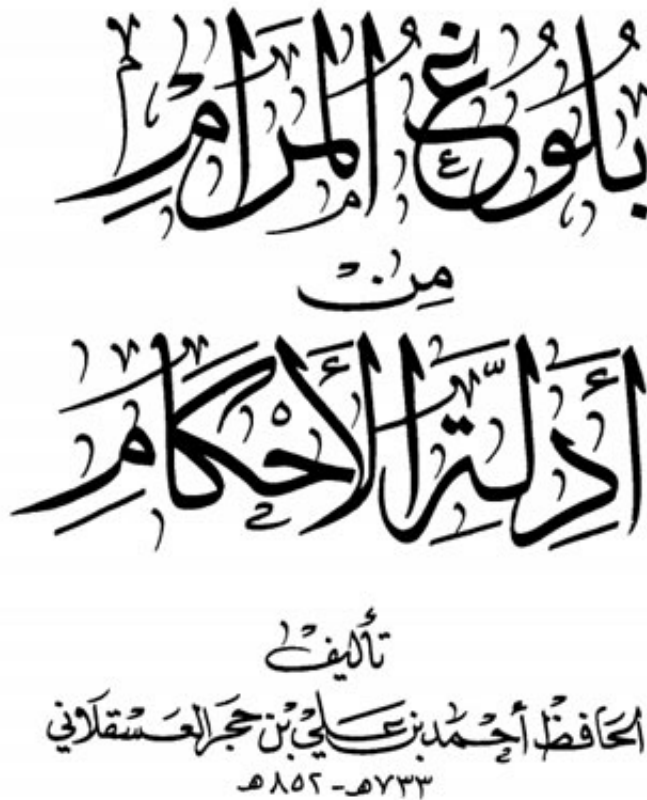 بُلُوغُ المَرَامِ
مِنْ
أَدِلَّةِ الأَحْكَامِ
تأليف
الحَافظ أحْمَد بن عَليْ بْن حَجَر العَسْقلَاني
٧٣٣هـ - ٨٥٢هـ